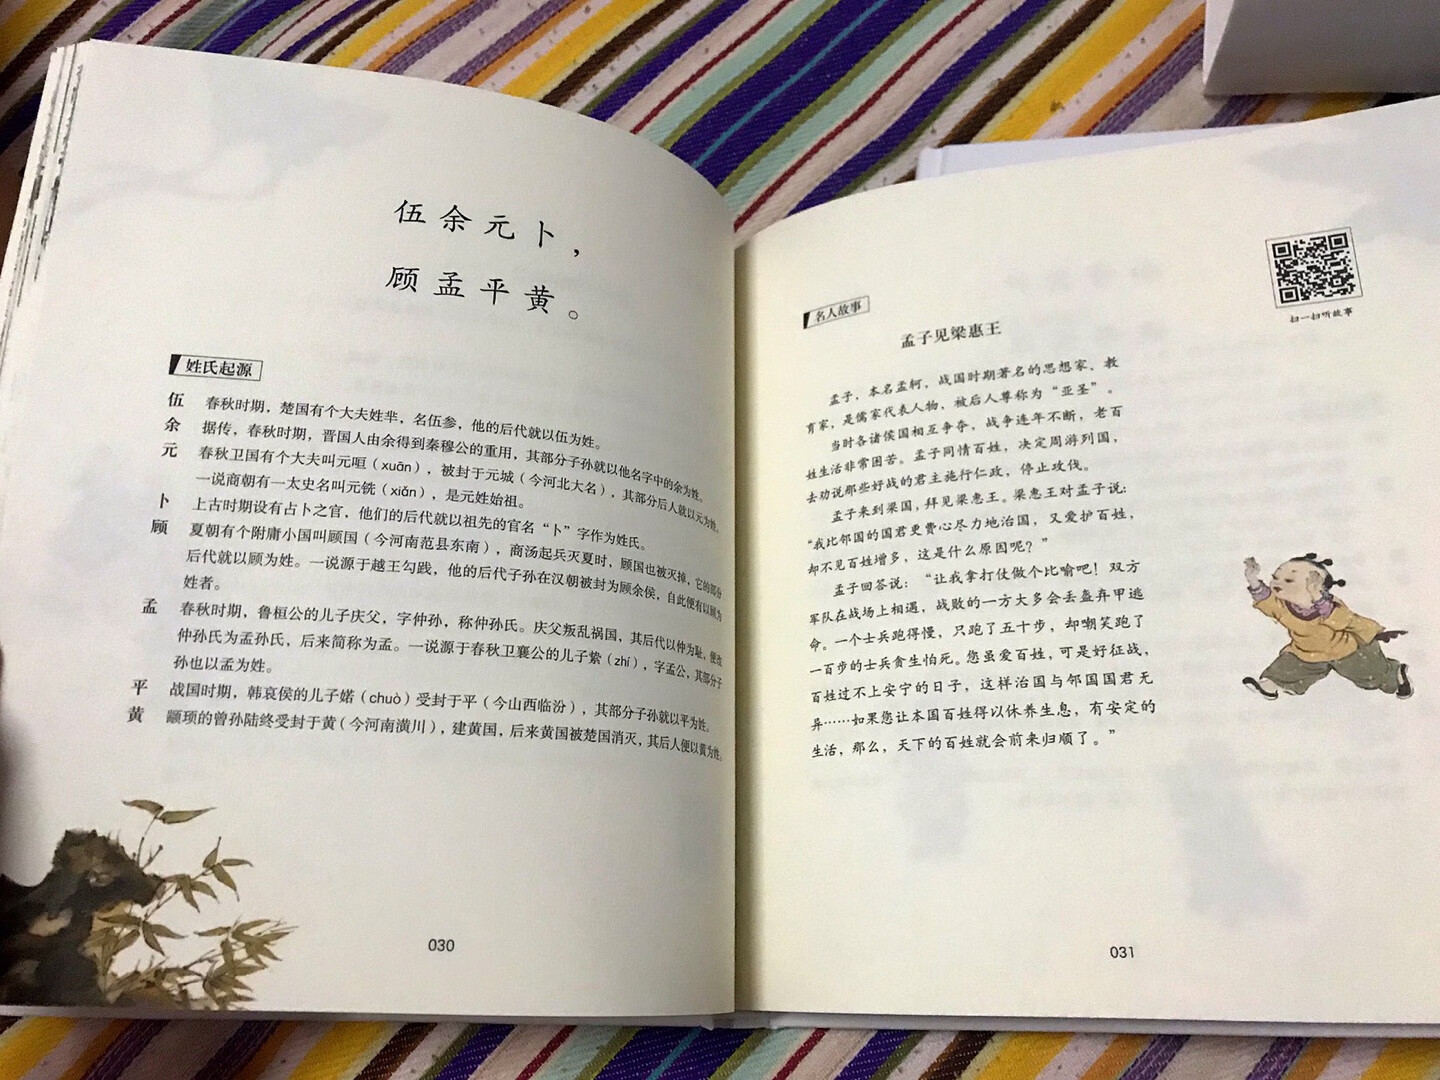 伍余元卜，
顾孟平黄。
姓氏起源
伍 春秋时期，楚国有个大夫姓芈，名伍参，他的后代就以伍为姓。
余 据传，春秋时期，晋国人由余得到秦穆公的重用，其部分子孙就以他名字中的余为姓。
元 春秋卫国有个大夫叫元咺（xuān），被封于元城（今河北大名），其部分后人就以元为姓。
一说商朝有一太史名叫元铣（xiǎn），是元姓始祖。
卜 上古时期设有占卜之官，他们的后代就以祖先的官名“卜”字作为姓氏。
顾 夏朝有个附庸小国叫顾国（今河南范县东南），商汤起兵灭夏时，顾国也被灭掉，它的部分
后代就以顾为姓。一说源于越王勾践，他的后代子孙在汉朝被封为顾余侯，自此便有以顾为
姓者。
孟 春秋时期，鲁桓公的儿子庆父，字仲孙，称仲孙氏。庆父叛乱祸国，其后代以仲为耻，便改
仲孙氏为孟孙氏，后来简称为孟。一说源于春秋卫襄公的儿子絷（zhí），字孟公，其部分子
孙也以孟为姓。
平 战国时期，韩哀侯的儿子婼（chuò）受封于平（今山西临汾），其部分子孙就以平为姓。
黄 颛顼的曾孙陆终受封于黄（今河南潢川），建黄国，后来黄国被楚国消灭，其后人便以黄为姓。
030
名人故事
扫一扫听故事
孟子见梁惠王
孟子，本名孟轲，战国时期著名的思想家、教
育家，是儒家代表人物，被后人尊称为“亚圣”。
当时各诸侯国相互争夺，战争连年不断，老百
姓生活非常困苦。孟子同情百姓，决定周游列国，
去劝说那些好战的君主施行仁政，停止攻伐。
孟子来到梁国，拜见梁惠王。梁惠王对孟子说：
“我比邻国的国君更费心尽力地治国，又爱护百姓，
却不见百姓增多，这是什么原因呢？”
孟子回答说：“让我拿打仗做个比喻吧！双方
军队在战场上相遇，战败的一方大多会丢盔弃甲逃
命。一个士兵跑得慢，只跑了五十步，却嘲笑跑了
一百步的士兵贪生怕死。您虽爱百姓，可是好征战，
百姓过不上安宁的日子，这样治国与邻国国君无
异……如果您让本国百姓得以休养生息，有安定的
生活，那么，天下的百姓就会前来归顺了。”
031